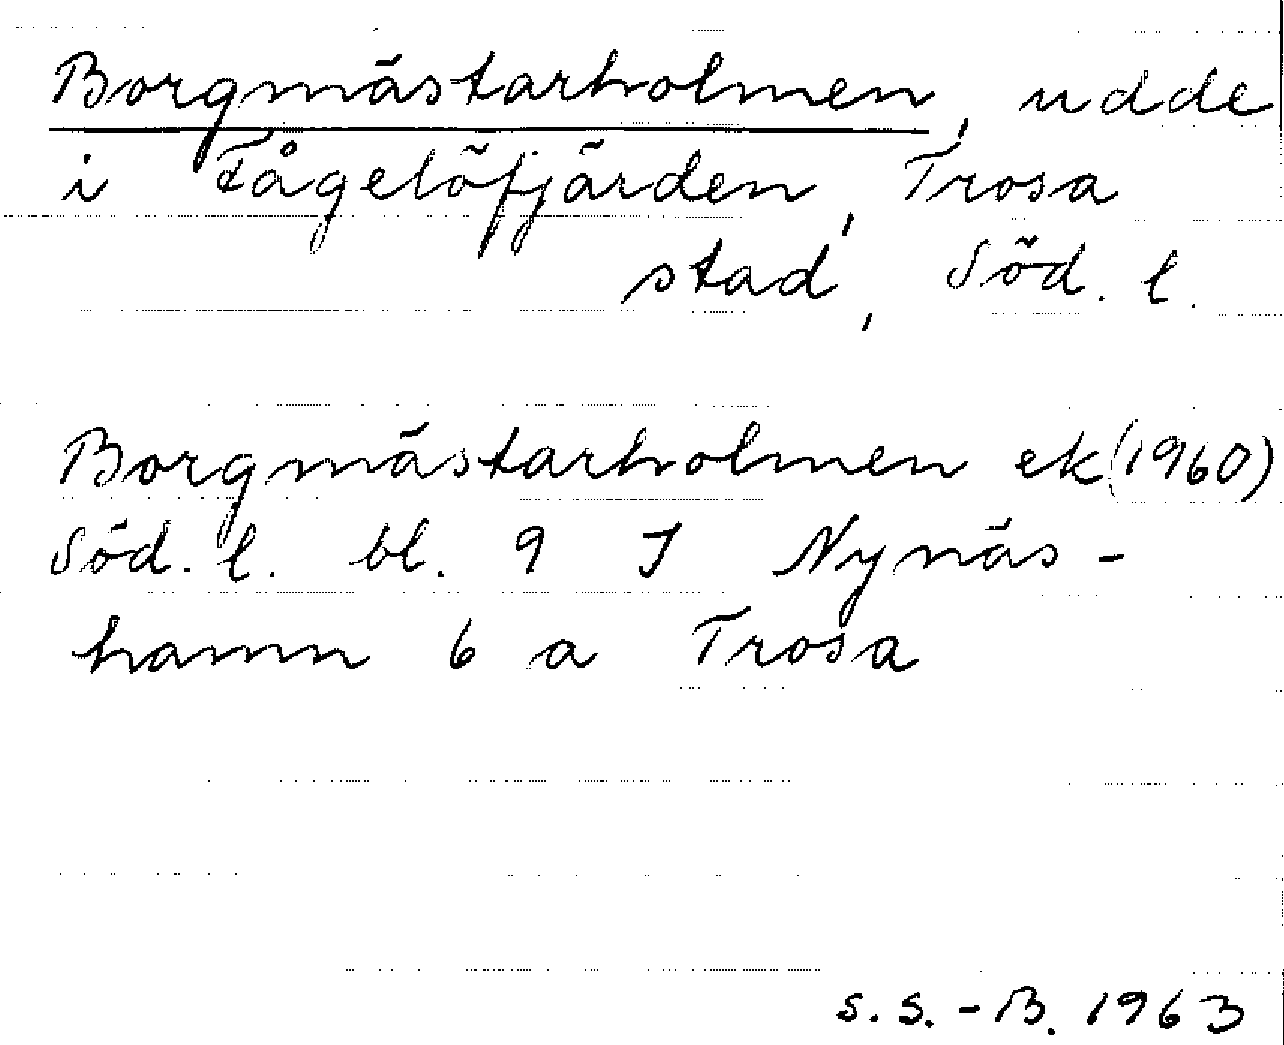 Borgmästarholmen, udde
i Fågelöfjärden, Trosa
stad, Söd. l.
Borgmästarholmen ek (1960)
Söd. l. bl. 9 I Nynäs-
hamn 6 a Trosa
S. S.-B. 1963